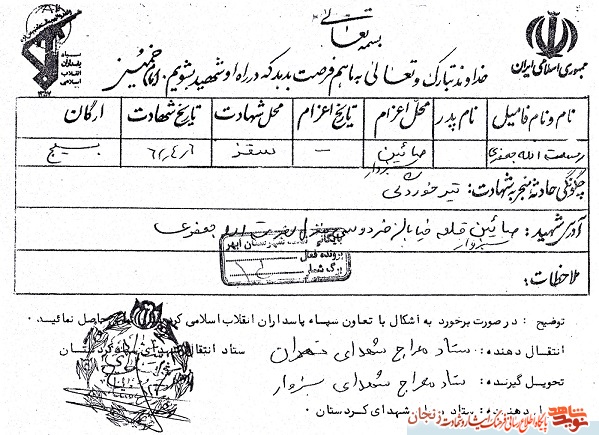 بسمه تعالی
سپاه
پاسداران
انقلاب
اسلامی
جمهوری اسلامی ایران
خداوند تبارک و تعالی به ما هم فرصت بدهد که در راه او شهید بشویم. امام خمینی
نام و نام فامیل نام پدر محل اعزام تاریخ اعزام محل شهادت تاریخ شهادت ارگان
الله صائین - سقز ۶۲/۴/۶ بسیج
چگونگی حادثه منجر به شهادت: تیر خوردگی
آدرس شهید: صائین قلعه خیابان منزل
بایگانی
شهرستان ابهر
پرونده فعال
برگ شمار
ملاحظات:
توضیح: در صورت برخورد به اشکال با تعاون سپاه پاسداران انقلاب اسلامی حاصل نمائید.
انتقال دهنده: ستاد معراج شهدای تهران ستاد انتقال
تحویل گیرنده: ستاد معراج شهدای سبزوار
دهنده: شهدای کردستان.
نوید شاهد پایگاه اطلاع رسانی فرهنگ ایثار و شهادت زنجان